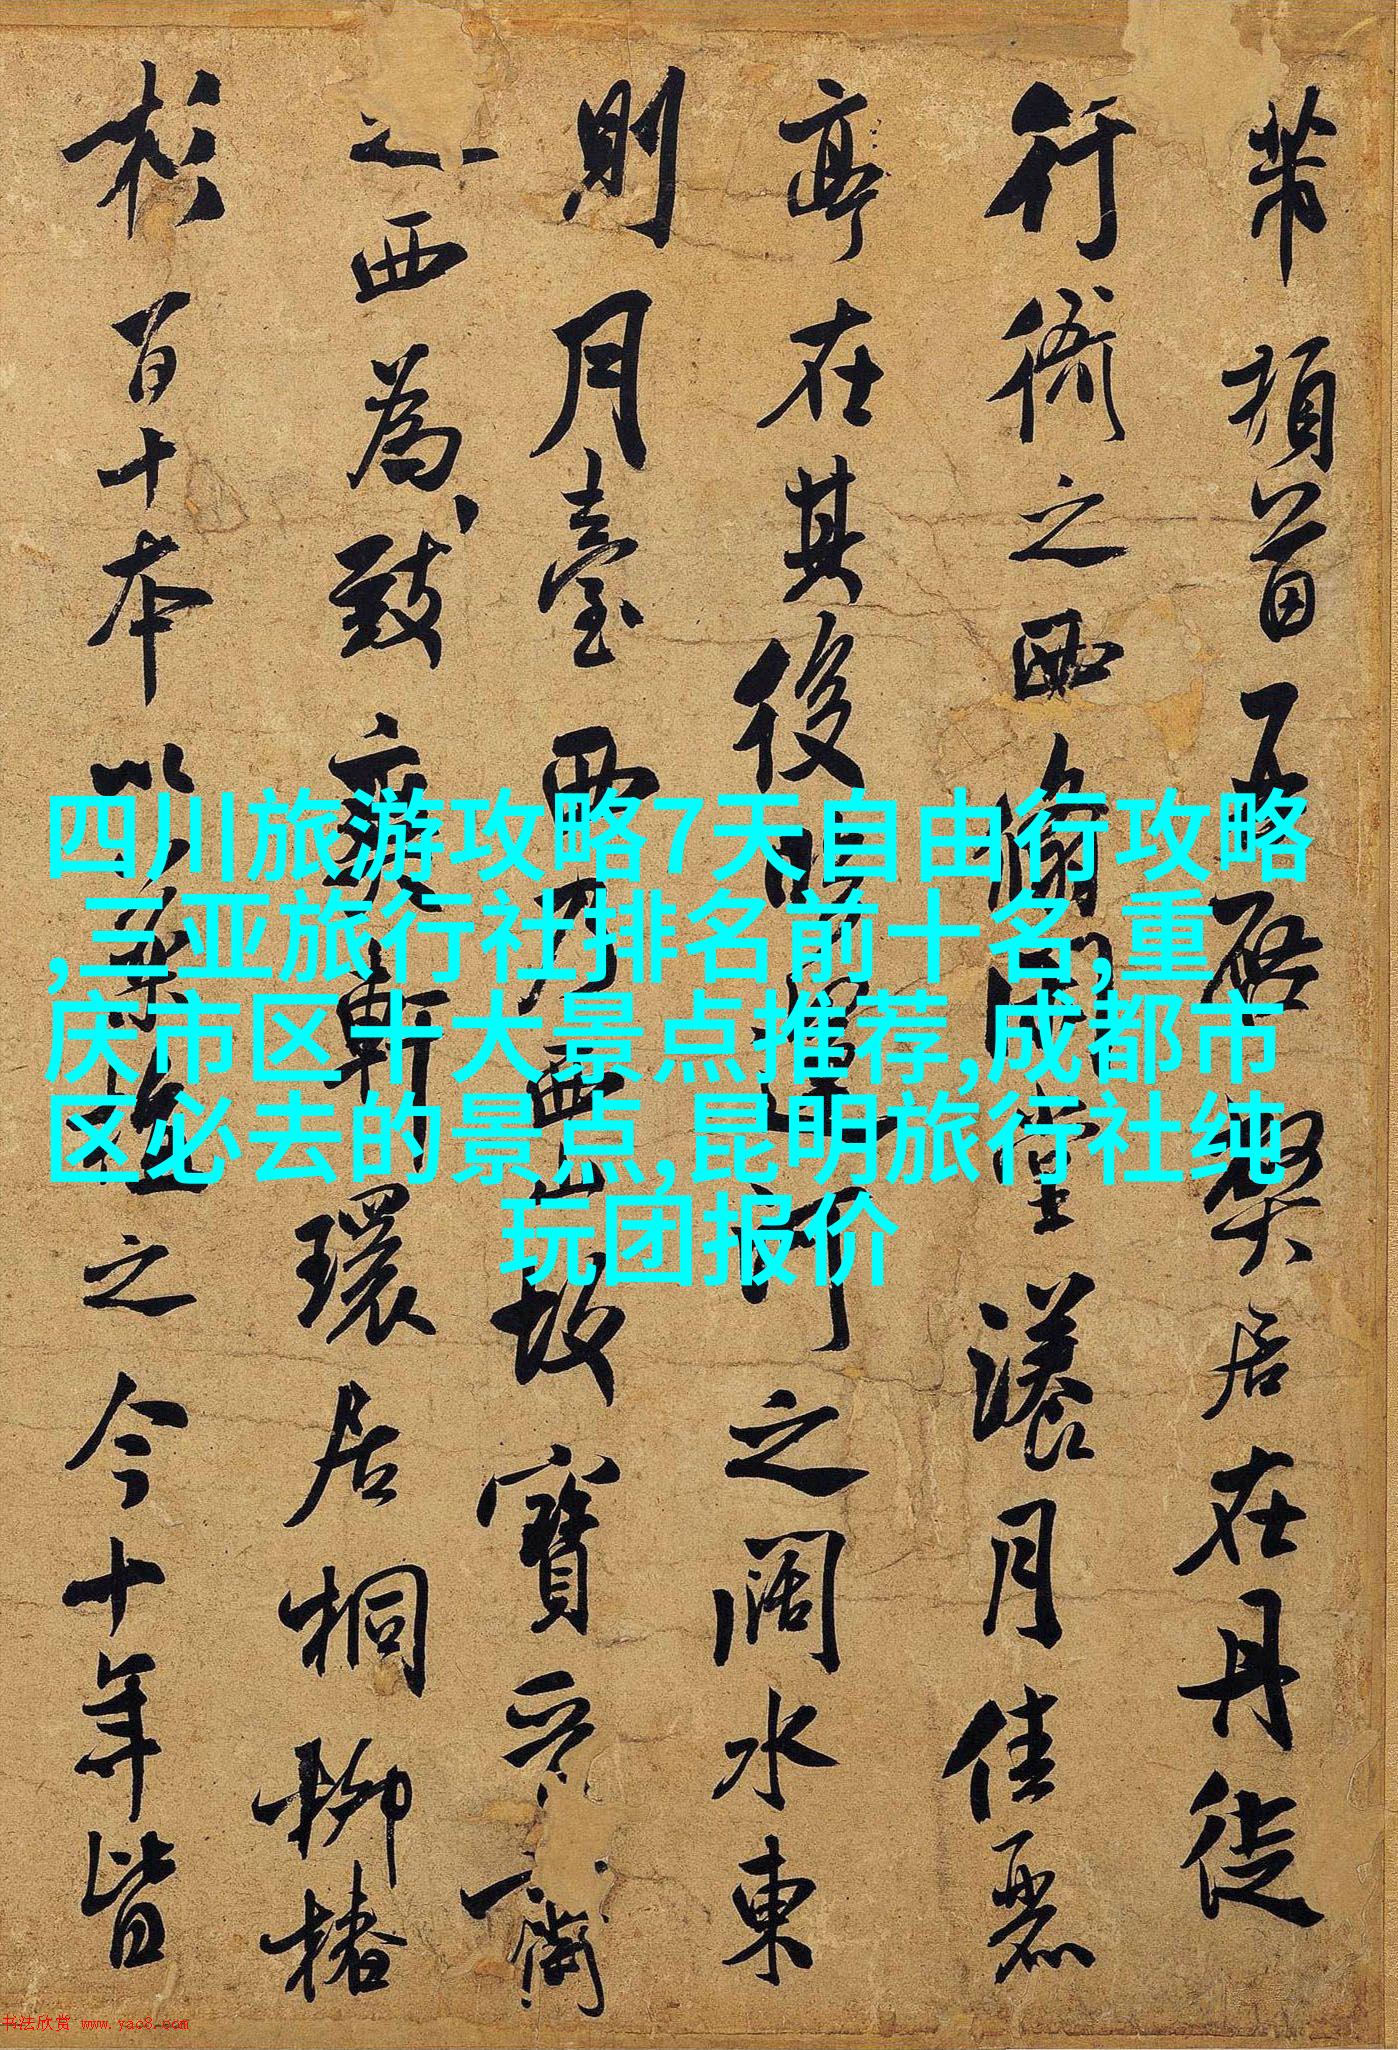 芾頓首再啟弊居在丹徒
行衙之西翛閒堂漾月佳麗
亭在其後臨運河之闊水東
則月臺西乃西山故寶晉齋
之西為致爽軒環居桐柳椿
杉百十本以藥植之今十年皆
四川旅游攻略7天自由行攻略
,三亚旅行社排名前十名,重
庆市区十大景点推荐,成都市
区必去的景点,昆明旅行社纯
玩团报价
书法欣赏 www.yac8.com